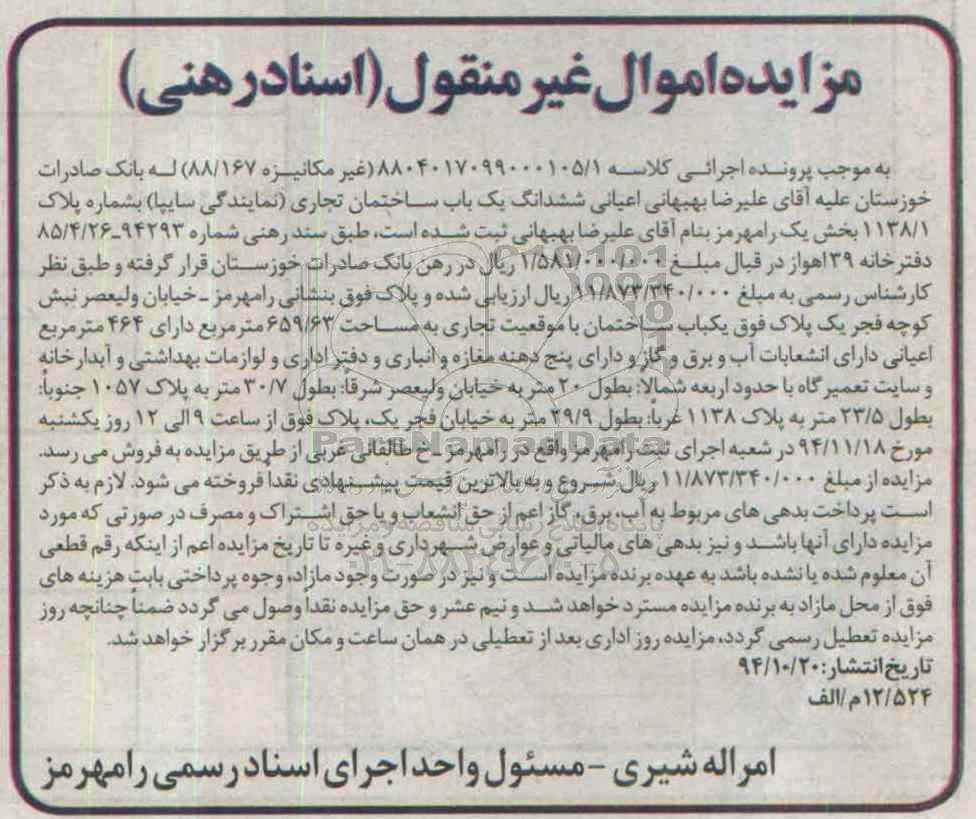 مزایده اموال غیر منقول (اسناد رهنی)
به موجب پرونده اجرائی کلاسه ۸۸۰۴۰۱۷۰۹۹۰۰۰۱۰۵/۱ (غیر مکانیزه ۸۸/۱۶۷) له بانک صادرات
خوزستان علیه آقای علیرضا بهبهانی اعیانی ششدانگ یک باب ساختمان تجاری (نمایندگی سایپا) بشماره پلاک
۱۱۳۸/۱ بخش یک رامهرمز بنام آقای علیرضا بهبهانی ثبت شده است، طبق سند رهنی شماره ۹۴۲۹۳-۸۵/۴/۲۶
دفترخانه ۳۹ اهواز در قبال مبلغ ۱/۵۸۱/۰۰۰/۰۰۰ ریال در رهن بانک صادرات خوزستان قرار گرفته و طبق نظر
کارشناس رسمی به مبلغ ۱۱/۸۷۳/۳۴۰/۰۰۰ ریال ارزیابی شده و پلاک فوق بنشانی رامهرمز - خیابان ولیعصر نبش
کوچه فجر یک پلاک فوق یکباب ساختمان با موقعیت تجاری به مساحت ۶۵۹/۶۳ مترمربع دارای ۴۶۴ مترمربع
اعیانی دارای انشعابات آب و برق و گاز و دارای پنج دهنه مغازه و انباری و دفتر اداری و لوازمات بهداشتی و آبدارخانه
و سایت تعمیرگاه با حدود اربعه شمالاً: بطول ۲۰ متر به خیابان ولیعصر شرقا: بطول ۳۰/۷ متر به پلاک ۱۰۵۷ جنوباً:
بطول ۲۳/۵ متر به پلاک ۱۱۳۸ غرباً: بطول ۲۹/۹ متر به خیابان فجر یک، پلاک فوق از ساعت ۹ الی ۱۲ روز یکشنبه
مورخ ۹۴/۱۱/۱۸ در شعبه اجرای ثبت رامهرمز واقع در رامهرمز - خ طالقانی غربی از طریق مزایده به فروش می رسد.
مزایده از مبلغ ۱۱/۸۷۳/۳۴۰/۰۰۰ ریال شروع و به بالاترین قیمت پیشنهادی نقداً فروخته می شود. لازم به ذکر
است پرداخت بدهی های مربوط به آب، برق، گاز اعم از حق انشعاب و یا حق اشتراک و مصرف در صورتی که مورد
مزایده دارای آنها باشد و نیز بدهی های مالیاتی و عوارض شهرداری و غیره تا تاریخ مزایده اعم از اینکه رقم قطعی
آن معلوم شده یا نشده باشد به عهده برنده مزایده است و نیز در صورت وجود مازاد، وجوه پرداختی بابت هزینه های
فوق از محل مازاد به برنده مزایده مسترد خواهد شد و نیم عشر و حق مزایده نقداً وصول می گردد ضمناً چنانچه روز
مزایده تعطیل رسمی گردد، مزایده روز اداری بعد از تعطیلی در همان ساعت و مکان مقرر برگزار خواهد شد.
تاریخ انتشار: ۹۴/۱۰/۲۰
۱۲/۵۲۴/م/الف
امراله شیری - مسئول واحد اجرای اسناد رسمی رامهرمز
ParsNamadData